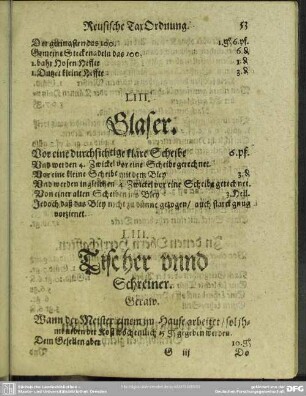 Reusische TaxOrdnung. 53
Der geringsten das 100. 1.gl.6.pf.
Gemeine Steckenadeln das 100. 6.₰
1.
Hosen Heffte 1.₰
1. kleine Heffte 3.₰
LIII.
Glaser.
Vor eine durchsichtige klare Scheibe 6.pf.
Und werden 4. Zwickel vor eine Scheibe gerechnet.
Vor eine kleine Scheibe mit dem Bley 3.₰
Und werden ingleichen 4 Zwickel vor eine Scheibe gerechnet.
Von einer alten Scheiben ins Bley 3.Hell.
Jedoch daß das Bley nicht zu dünne gezogen / auch starck gnug
verzinnet.
LIIII.
Tischer vnnd
Schreiner.
Geraw.
Wann der Meister einem im Hause arbeitet / sol jhme
neben der Kost Wochentlich gegeben werden.
Dem Gesellen aber 10.gl.
G iij Do